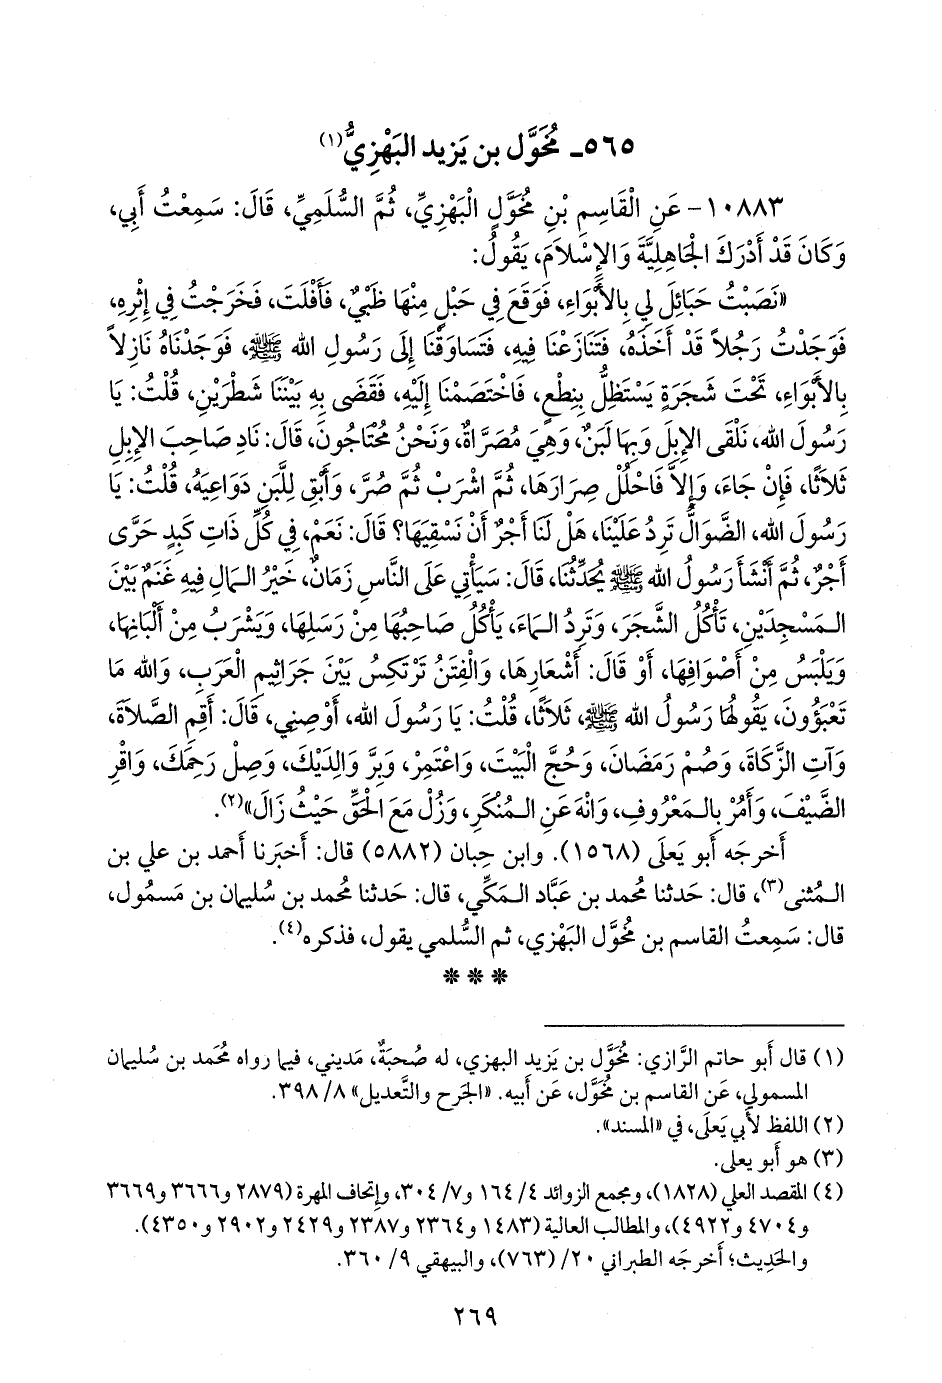 ٥٦٥ـ مُخَوَّل بن يَزيد البَهْزِيُّ(١)
١٠٨٨٣- عَنِ الْقَاسِمِ بْنِ مُخَوَّلٍ الْبَهْزِيِّ، ثُمَّ السُّلَمِيِّ، قَالَ: سَمِعْتُ أَبِي،
وَكَانَ قَدْ أَدْرَكَ الْجَاهِلِيَّةَ وَالإِسْلاَمَ، يَقُولُ:
«نَصَبْتُ حَبَائِلَ لِي بِالأَبْوَاءِ، فَوَقَعَ فِي حَبْلٍ مِنْهَا ظَبْيٌ، فَأَفْلَتَ، فَخَرَجْتُ فِي إِثْرِهِ،
فَوَجَدْتُ رَجُلاً قَدْ أَخَذَهُ، فَتَنَازَعْنَا فِيهِ، فَتَسَاوَقْنَا إِلَى رَسُولِ الله ﷺ، فَوَجَدْنَاهُ نَازِلاً
بِالأَبْوَاءِ، تَحْتَ شَجَرَةٍ يَسْتَظِلُّ بِنِطْعٍ، فَاخْتَصَمْنَا إِلَيْهِ، فَقَضَى بِهِ بَيْنَنَا شَطْرَيْنِ، قُلْتُ: يَا
رَسُولَ الله، نَلْقَى الإِبِلَ وَبِهَا لَبَنٌ، وَهِيَ مُصَرَّاةٌ، وَنَحْنُ مُحْتَاجُونَ، قَالَ: نَادِ صَاحِبَ الإِبِلِ
ثَلاَثًا، فَإِنْ جَاءَ، وَإِلاَّ فَاحْلُلْ صِرَارَهَا، ثُمَّ اشْرَبْ ثُمَّ صُرَّ، وَأَبْقِ لِلَّبَنِ دَوَاعِيَهُ، قُلْتُ: يَا
رَسُولَ الله، الضَّوَالُّ تَرِدُ عَلَيْنَا، هَلْ لَنَا أَجْرٌ أَنْ نَسْقِيَهَا؟ قَالَ: نَعَمْ، فِي كُلِّ ذَاتِ كَبِدٍ حَرَّى
أَجْرٌ، ثُمَّ أَنْشَأَ رَسُولُ الله ﷺ يُحَدِّثُنَا، قَالَ: سَيَأْتِي عَلَى النَّاسِ زَمَانٌ، خَيْرُ الـمَالِ فِيهِ غَنَمٌ بَيْنَ
الـمَسْجِدَيْنِ، تَأْكُلُ الشَّجَرَ، وَتَرِدُ الـمَاءَ، يَأْكُلُ صَاحِبُهَا مِنْ رَسَلِهَا، وَيَشْرَبُ مِنْ أَلْبَانِهَا،
وَيَلْبَسُ مِنْ أَصْوَافِهَا، أَوْ قَالَ: أَشْعَارِهَا، وَالْفِتَنُ تَرْتَكِسُ بَيْنَ جَرَاثِيمِ الْعَرَبِ، وَالله مَا
تَعْبَؤُونَ، يَقُولُهَا رَسُولُ الله ﷺ، ثَلاَثًا، قُلْتُ: يَا رَسُولَ الله، أَوْصِنِي، قَالَ: أَقِمِ الصَّلاَةَ،
وَآتِ الزَّكَاةَ، وَصُمْ رَمَضَانَ، وَحُجَّ الْبَيْتَ، وَاعْتَمِرْ، وَبِرَّ وَالِدَيْكَ، وَصِلْ رَحِمَكَ، وَاقْرِ
الضَّيْفَ، وَأْمُرْ بِالـمَعْرُوفِ، وَانْهَ عَنِ الـمُنْكَرِ، وَزُلْ مَعَ الْحَقِّ حَيْثُ زَالَ»(٢).
أَخرجَه أَبو يَعلَى (١٥٦٨). وابن حِبان (٥٨٨٢) قال: أَخبَرنا أَحمد بن علي بن
الـمُثنى(٣)، قال: حَدثنا مُحمد بن عَبَّاد الـمَكِّي، قال: حَدثنا مُحمد بن سُليمان بن مَسمُول،
قال: سَمِعتُ القاسم بن مُخَوَّل البَهْزي، ثم السُّلمي يقول، فذكره(٤).
***
(١) قال أَبو حاتم الرَّازي: مُخَوَّل بن يَزيد البهزي، له صُحبَةٌ، مَديني، فيما رواه مُحَمد بن سُليمان
المسمولي، عَن القاسم بن مُخَوَّل، عَن أَبيه. «الجَرح والتَّعديل» ٨/ ٣٩٨.
(٢) اللفظ لأَبي يَعلَى، في «المسند».
(٣) هو أَبو يعلى.
(٤) المقصد العلي (١٨٢٨)، ومجمع الزوائد ٤/ ١٦٤ و٧/ ٣٠٤، وإتحاف المهرة (٢٨٧٩ و٣٦٦٦ و٣٦٦٩
و٤٧٠٤ و٤٩٢٢)، والمطالب العالية (١٤٨٣ و٢٣٦٤ و٢٣٨٧ و٢٤٢٩ و٢٩٠٢ و٤٣٥٠).
والحَدِيث؛ أَخرجَه الطبراني ٢٠/ (٧٦٣)، والبيهقي ٩/ ٣٦٠.
٢٦٩